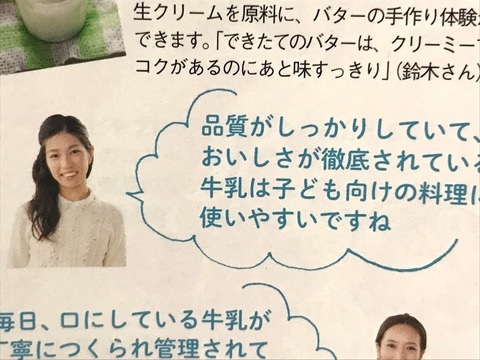 生クリームを原料に、バターの手作り体験
できます。「できたてのバターは、クリーミー
コクがあるのにあと味すっきり」(鈴木さん)
品質がしっかりしていて、
おいしさが徹底されている
牛乳は子ども向けの料理に
使いやすいですね
毎日、口にしている牛乳が
丁寧につくられ管理されて